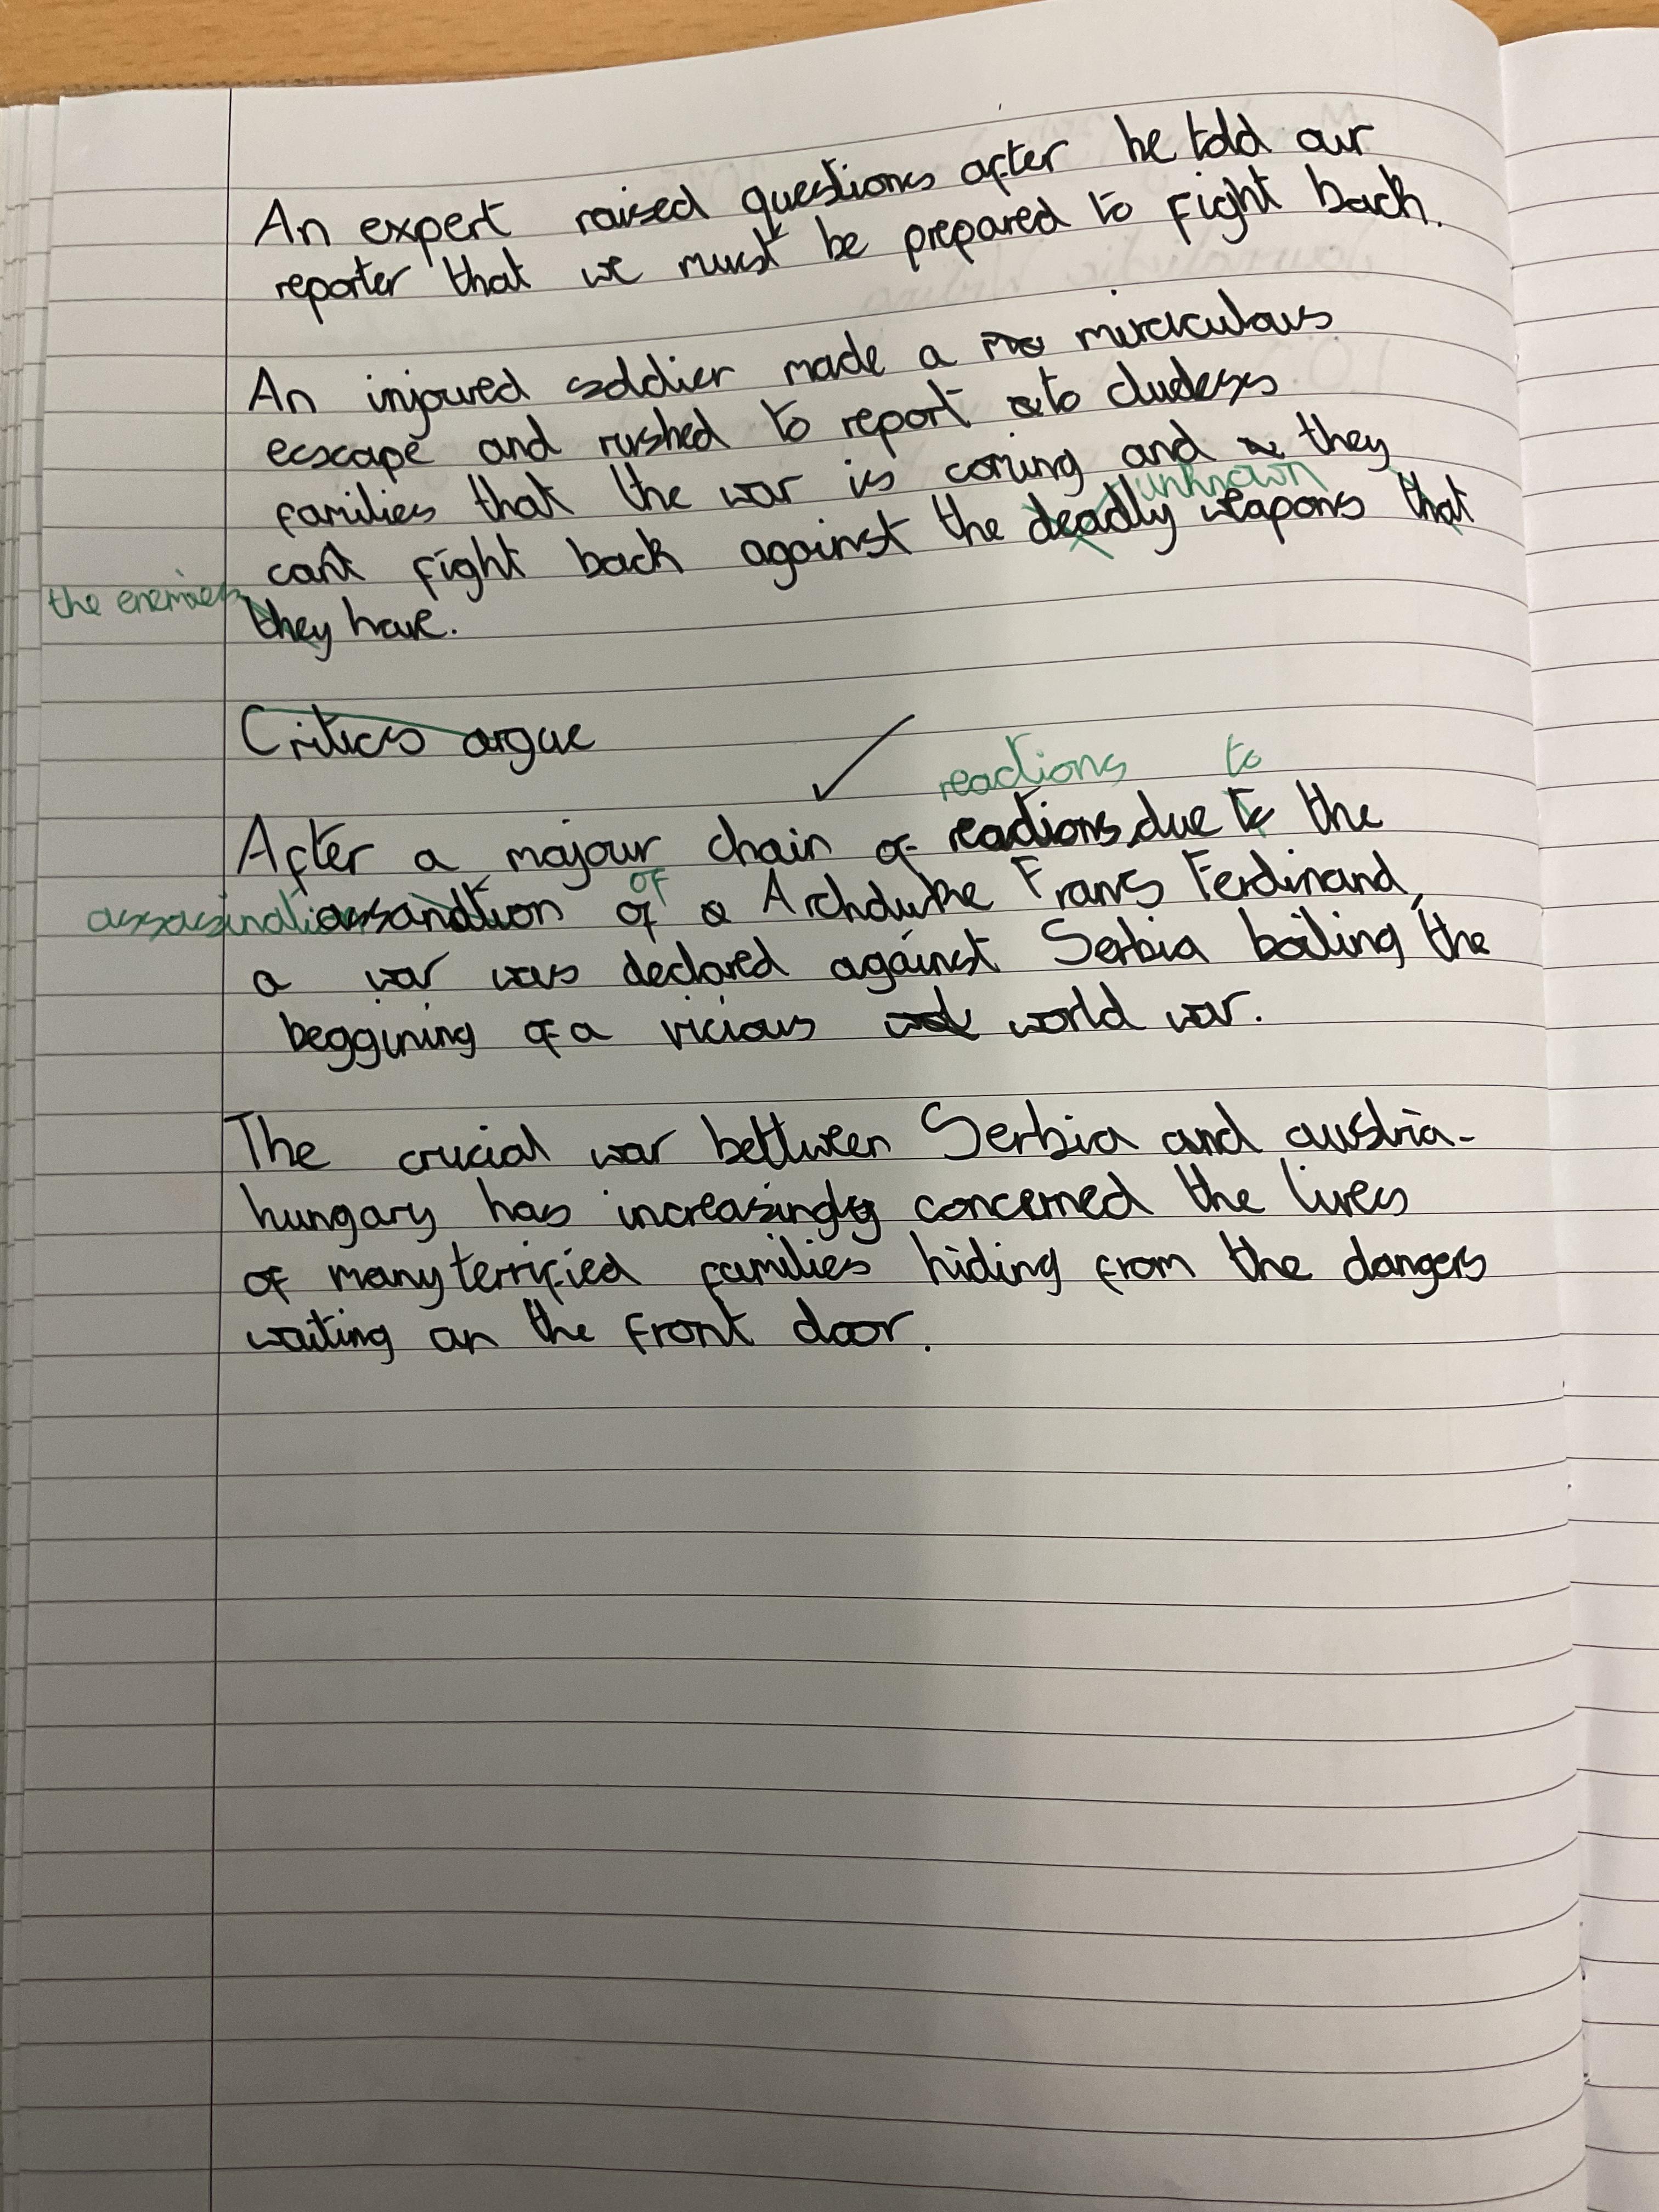 An expert raised questions after he told our
reporter that we must be prepared to fight back.
An injoured soldier made a mirckculous
ecscape and rushed to report to cludess
families that the war is coming and they
unknown
can't fight back against the deadly weapons that
the enemies
they have.
Critics argue
reactions to
After a majour chain of reactions, due to the
of
assasination of a Archduke Frans Ferdinand,
a war was declared against Serbia boiling the
beggining of a vicious world war.
The crucial war bettween Serbia and austria-
hungary has increasingly concerned the lives
of many terrified families hiding from the dangers
waiting an the front door.